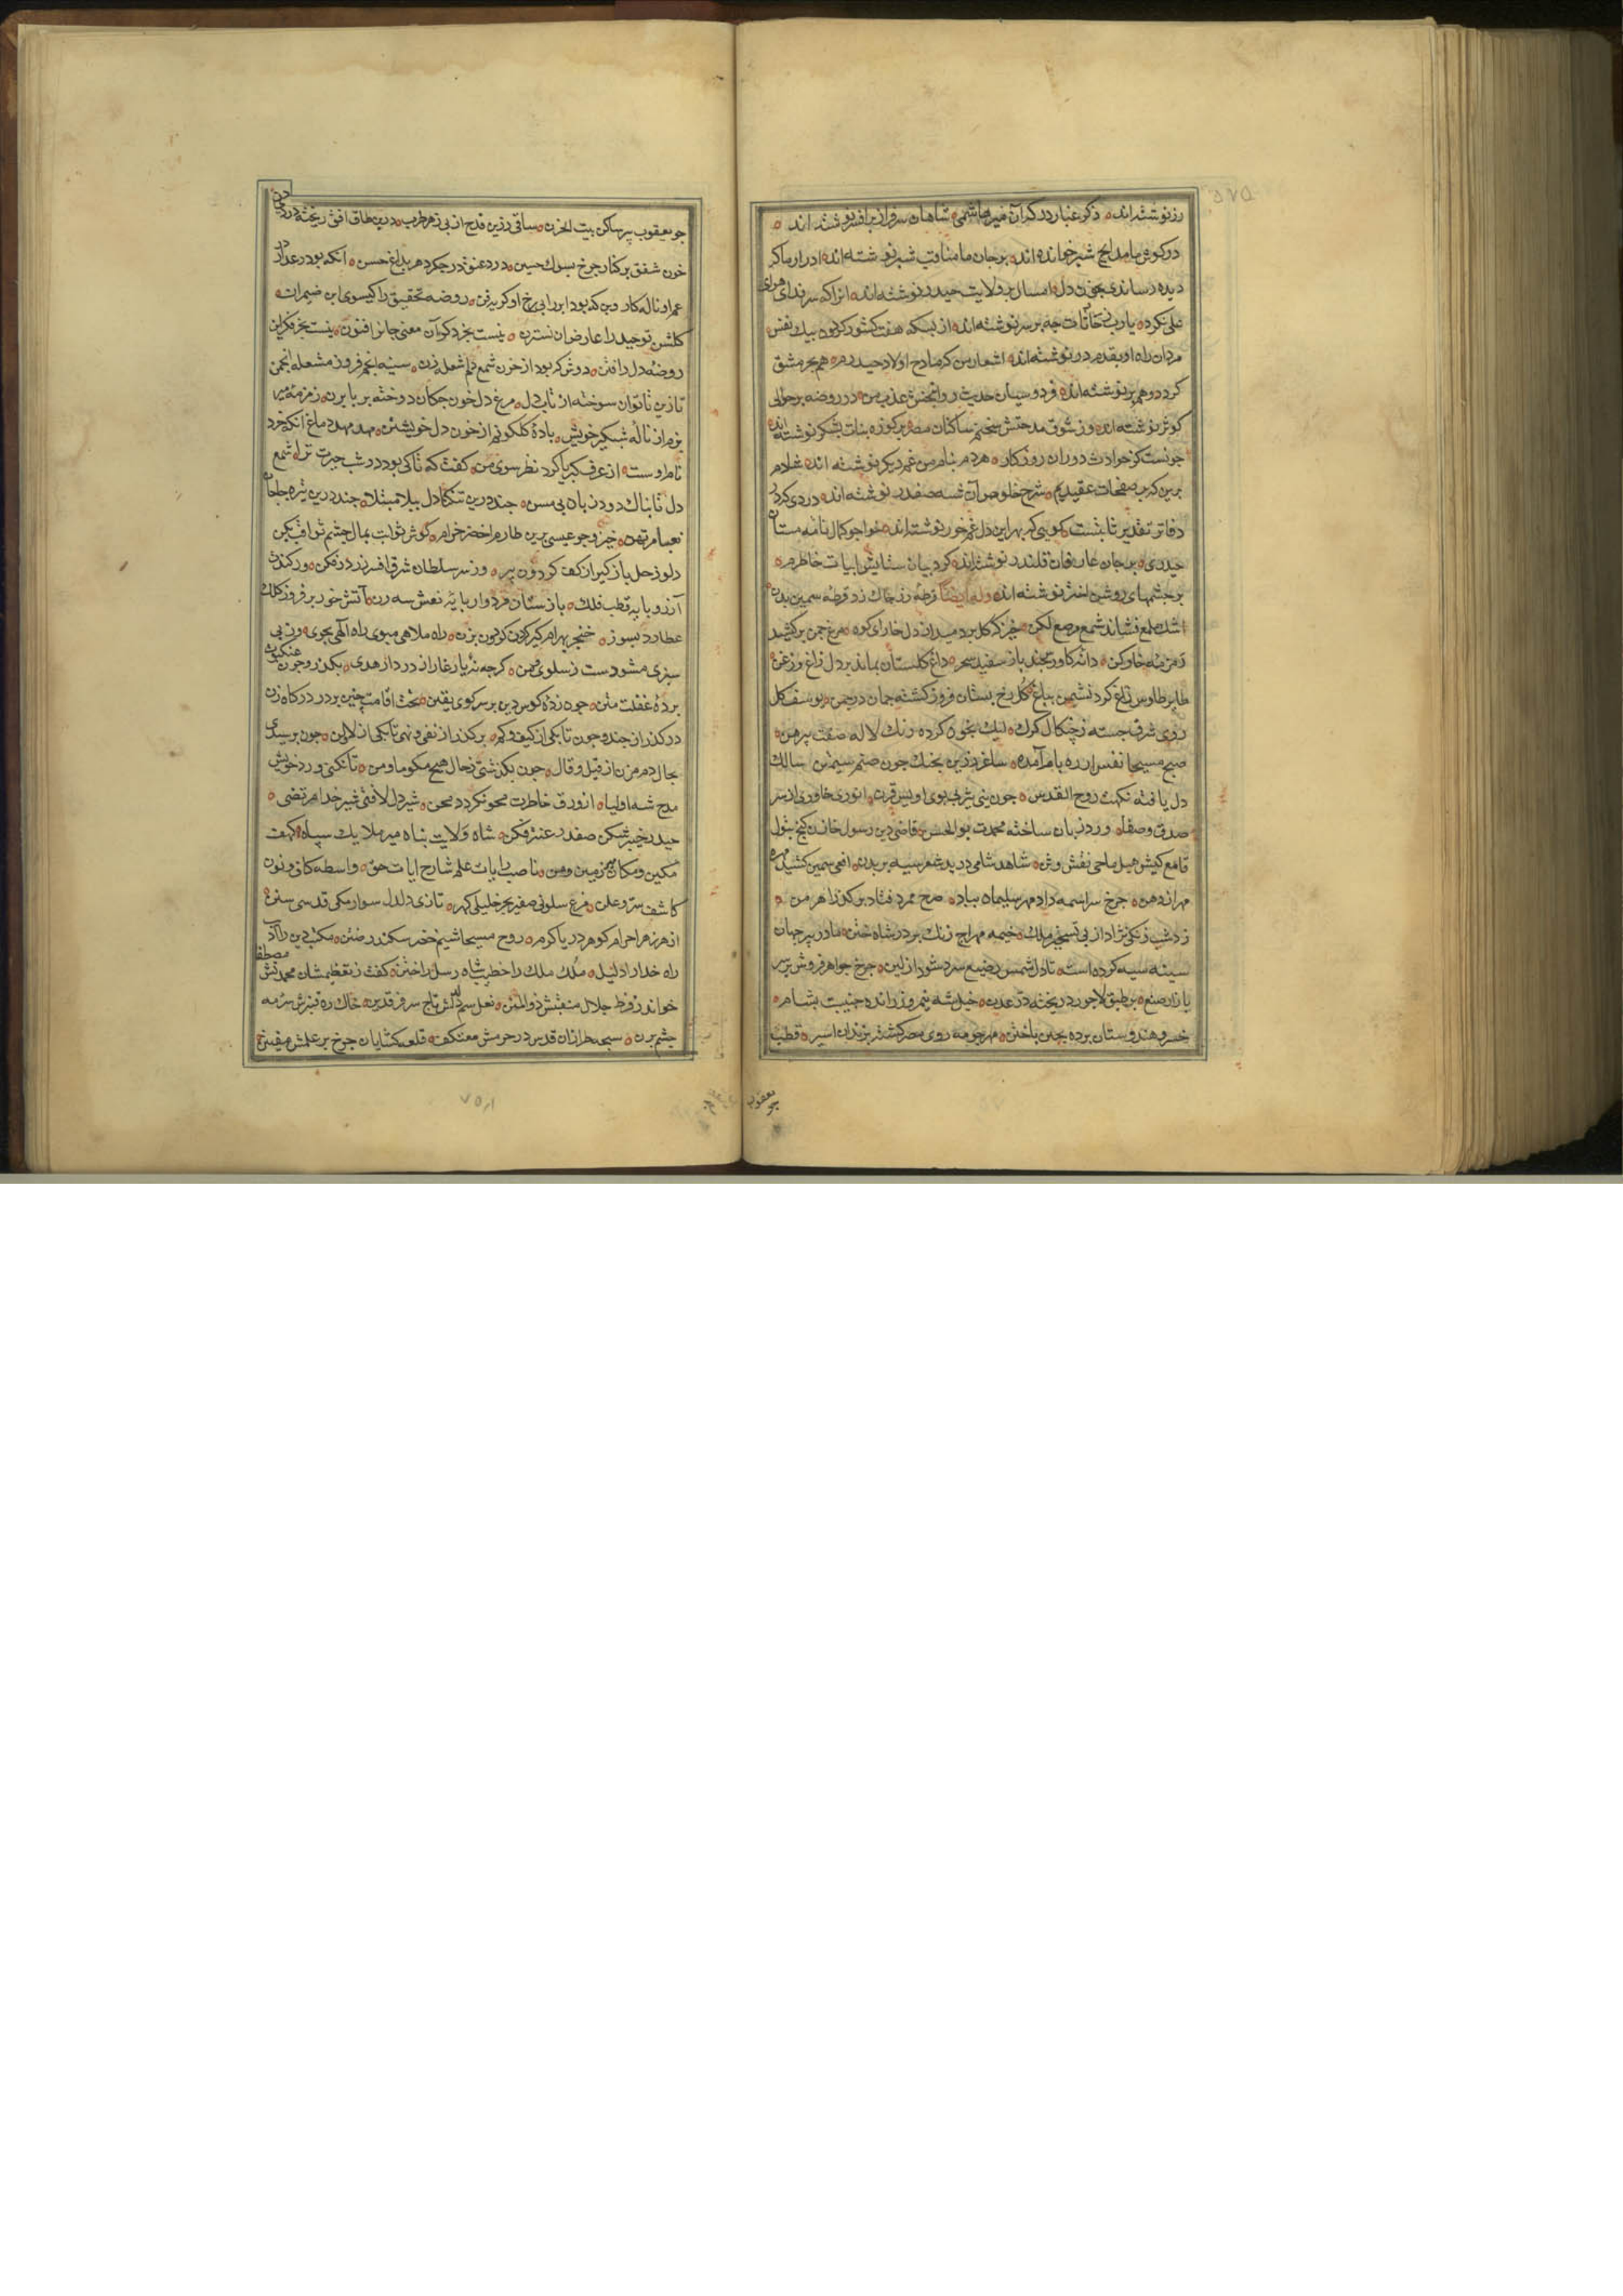 رزنوشته‌اند ذکر غبار درگه آن میر هاشمی شاهان سرفراز بر افسر نوشته‌اند
در گوش ما مدایح شبر خوانده‌اند بر جان ما مناقب شبر نوشته‌اند ادرار ما که
دیده رساندی بخون دل امسال بر ولایت حیدر نوشته‌اند انرا که سر ندای
علی نکرده یارب چه بر سر نوشته‌اند از بسکه هفت کشور گردون بیک نفس
مردان راه او بقدم در نوشته‌اند اشعار من که مادح اولاد حیدرم هم بحر مشق
کرده و هم بر نوشته‌اند فردوسیان حدیث روانبخش عذب من در روضه بر حوالی
کوثر نوشته‌اند وز شوق مدحتش سخنم ساکنان مصر بر کوزه نبات بشکر نوشته‌اند
چونست کز حوادث دوران روزگار هر دم بنام من غم دیگر نوشته‌اند شادم
برین که بر صفحات عقیدتم شرح خلوص آن شه صفدر نوشته‌اند دردی که در
دفاتر تقدیر ثابتست گویی که بهر این دل غمخور نوشته‌اند خواجو کمال نامه مستان
حیدری بر جان عارفان قلندر نوشته‌اند کرد بیان ستایش ابیات خاطرم
بر چشمهای روشن اختر نوشته‌اند وله ایضا قرطه زر چاک زد قرطه سمین بدن
اشک ملمع نشاند شمع مرصع لگن خیز که گل بر دمید از دل خارای کوه مرغ چمن برکشید
زمزمه خارکن دانه گاورس چند باز سفید سحر داغ گلستان بماند بر دل زاغ و زغن
طایر طاوس زاغ کرد نشیمن بباغ گل رخ بستان فروز گشته جان در چمن یوسف گل
روی شرق جسته ز چنگال گرگ لیک بخون کرده رنگ لاله صفت پیرهن
صبح مسیحا نفس از ره بام آمده ساغر زرین بچنگ چون صنم سیمتن سالک
دل یافته نکهت روح القدس چون نبی یثربی بوی اویس قرن انوری خاوری از سر
صدق و صفا ورد زبان ساخته محمدت بوالحسن قاضی دین رسول خازن گنج بتول
قامع کیش هبل ماحی نفش وثن شاهد شامی درید شعر سیه بر بدن افعی سیمین کشید مهره
مهر از دهن چرخ سراسمه داد مهر سلیمان بباد صرح ممرد فتاد بر گذر اهرمن
زد شب زنگی نژاد از پی تسخیر ملک خیمه مهراج زنگ بر در شاه ختن مادر پیر جهان
سینه سیه کرده است تا دل شمس رضیع سرد شود از لبن چرخ جواهر فروش بر سر
بازار صنع بر طبق لاجورد ریخته در عدن خیل شه نیمروز رانده جنیبت بشام
خسرو هندوستان برده بچین تاختن مهر چو مه روی مصر گشته بزندان اسیر قطب
یعقوب
چو یعقوب پیر ساکن بیت الحزن ساقی زرین قدح از پی بزم طرب در بن طاق افق ریخته دردی دن
خون شفق بر کنار چرخ بسوک حسین درد عنق در جگر دهر بداغ حسن آنکه بود رعد از
غم او ناله کار وین که بود ابر را بی رخ او گریه فن روضه تحقیق را گیسوی این ضیمران
گلشن توحید را عارض آن نسترن نیست بجز ذکر آن معنی جانرا فنون نیست بجز فکر این
روضه دل را فتن دوش که بود از خرن شمع دلم شعله زن سینه انجم فروز مشعله انجمن
تازین ناتوان سوخته از تاب دل مرغ دل خون چکان دوخته بر بابزن زمزمه
بزم از ناله شبگیر خویش باده گلگونم از خون دل خویشتن مهد دماغ آنکه خرد
نام اوست از غرف کبریا کرد نظر سوی من گفت که تا کی بود در شب حیرت ترا شمع
دل تابناک دود زبان بی مسن چند درین تنگنا دل ببلا مبتلا چند درین تیره چاه جان
بعنا مرتهن خیز و چو عیسی برین طارم اخضر خرام گوش ثوابت بمال چشم ثواقب بکن
دلو زحل باز گیر از کف گردون پیر وز سر سلطان شرق افسر زر در فکن ور کندت
آرزو پایه قطب فلک باز ستان مردوار پایه نعش سه زن آتش خور بر فروز کلک
عطارد بسوز خنجر بهرام گیر گردن گردون بزن راه ملاهی مپوی راه الهی بجوی وز پی
سبزی مشو دست ز سلوی و من گرچه نه یار غار از در دار هدی بگذر و چون عنکبوت
پرده غفلت متن چون زده کوس دین بر سر کوی یقین تخت اقامت چنین بر در درگاه زن
در گذر از چند و چون تا بکی از کیف و کم بر گذر از نفی و نهی تا بکی از لا و لن چون برسیدی
بحال دم مزن از قیل و قال چون بگذشتی ز حال هیچ مگو ما و من تا نکنی ورد خویش
مدح شه اولیا از ورق خاطرت محو نگردد محن شیر دل لافتی شیر خدا مرتضی
حیدر خیبر شکن صفدر عنتر فکن شاه ولایت پناه میر ملایک سپاه کهف
مکین و مکان زین زمین و زمن ناصب رایات علم شارح ایات حق واسطه کاف و نون
کاشف سر و علن مرغ سلونی صفیر بحر خلیلی گهر تازی دلدل سوار مکی قدسی سنن
ازهر زهرا حرام گوهر دریا کرم روح مسیحا شیم خضر سکندر وطن مکتب دین را ادب
راه خدا را دلیل ملک ملک را خطیب شاه رسل را ختن گفت ز تعظیم شان محمدتش مصطفا
خواند ز فرط جلال منقبتش ذوالمنن نعل سم دلدلش تاج سر فرقدین خاک ره قنبرش سرمه
چشم پرن سبحه طرازان قدس در حرمش معتکف قلعه گشایان چرخ بر علمش مفتتن
۷۵۱